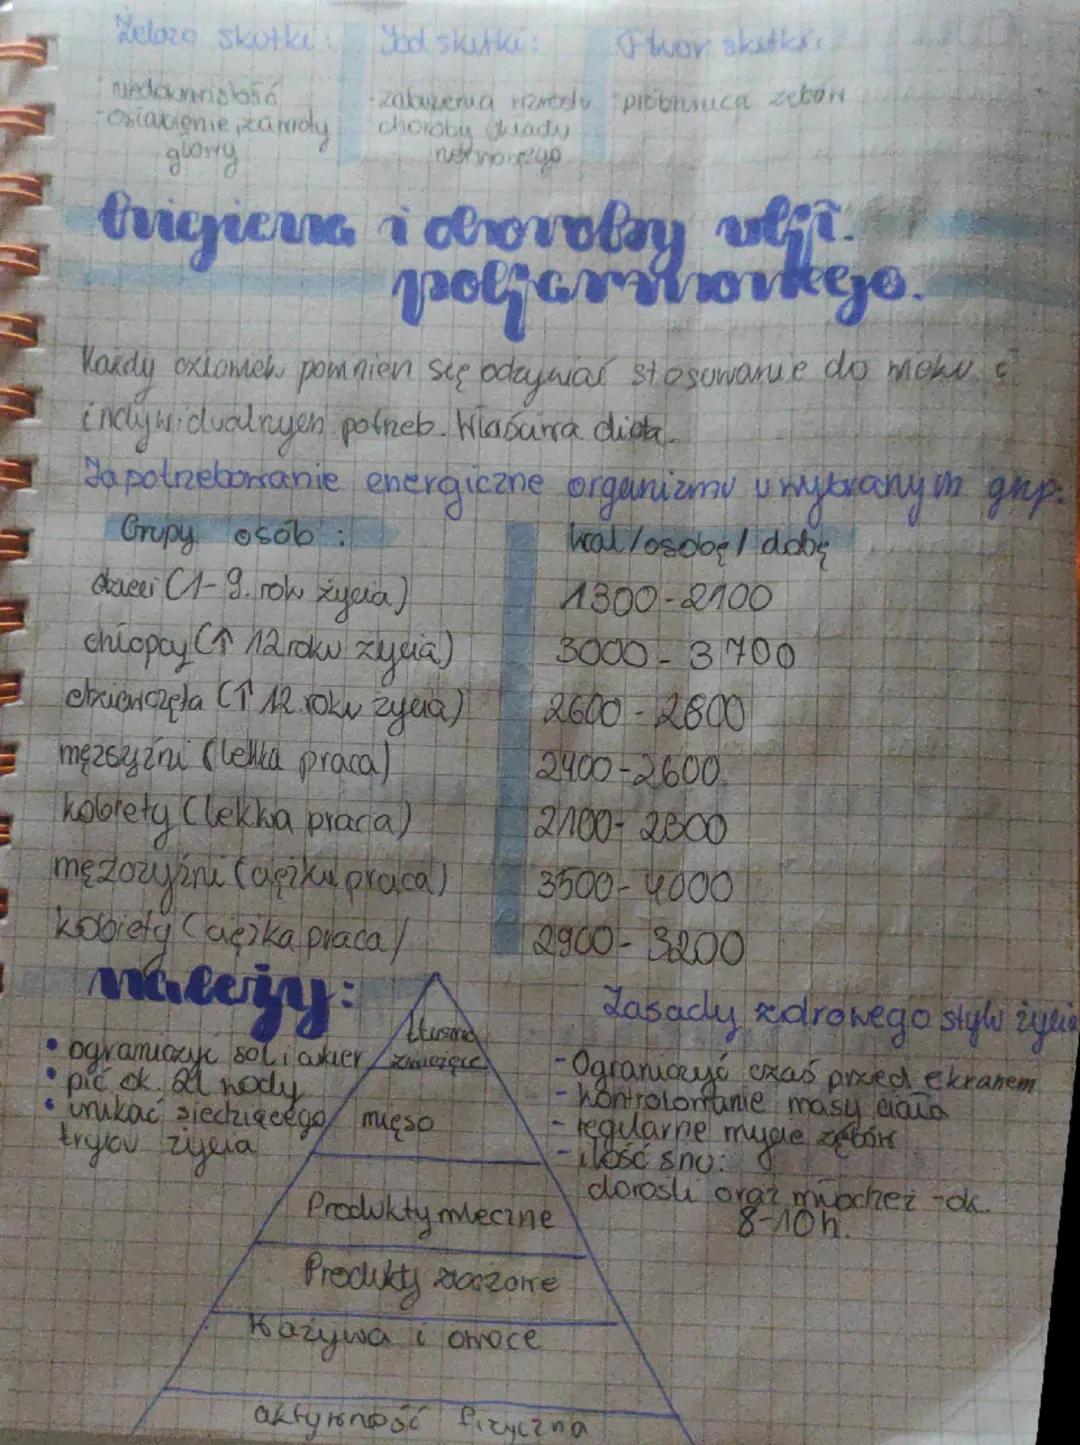 Żelazo skutki: Jod skutki: Fluor skutki:
niedokrwistość - zaburzenia wzrostu próchnica zębów
- osłabienie, zawroty choroby układu
głowy nerwowego
Higiena i choroby ukł.
pokarmowego.
Każdy człowiek powinien się odżywiać stosowanie do wieku i
indywidualnych potrzeb. Właściwa dieta.
Zapotrzebowanie energiczne organizmu u wybranych grup.
Grupy osób: kcal/osobę/dobę
dzieci (1-9. rok życia) 1300-2100
chłopcy (↑ 12 roku życia) 3000-3700
dziewczęta (↑ 12. roku życia) 2600-2800
mężsyźni (lekka praca) 2400-2600
kobiety (lekka praca) 2100-2300
mężczyźni (ciężka praca) 3500-4000
kobiety (ciężka praca) 2900-3200
należy:
• ograniczyć sól i cukier
• pić ok. 2l wody
• unikać siedzącego
trybu życia
tłuszcze
zwierzęce
mięso
Produkty mleczne
Produkty zbożowe
Warzywa i owoce
aktywność fizyczna
Zasady zdrowego stylu życia
- Ograniczyć czas przed ekranem
- kontrolowanie masy ciała
- regularne mycie zębów
- ilość snu:
dorośli oraz młodzież - ok.
8-10h.